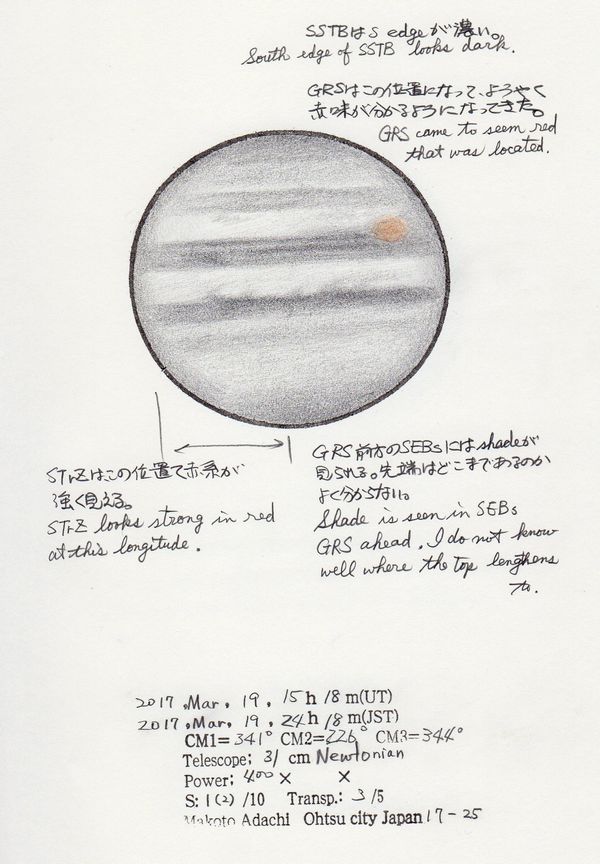 SSTBはS edgeが濃い。
South edge of SSTB looks dark.
GRSはこの位置になって、ようやく
赤味が分かるようになってきた。
GRS came to seem red
that was located.
STrZはこの位置で赤系が
強く見える。
STrZ looks strong in red
at this longitude.
GRS前方のSEBsにはshadeが
見られる。先端はどこまであるのか
よく分からない。
Shade is seen in SEBs
GRS ahead. I do not know
well where the top lengthens
to.
2017, Mar, 19, 15h 18m(UT)
2017, Mar, 19, 24h 18m(JST)
CM1=341° CM2=226° CM3=344°
Telescope; 31 cm Newtonian
Power; 400× ×
S: 1(2) /10 Transp.: 3 /5
Makoto Adachi Ohtsu city Japan 17-25